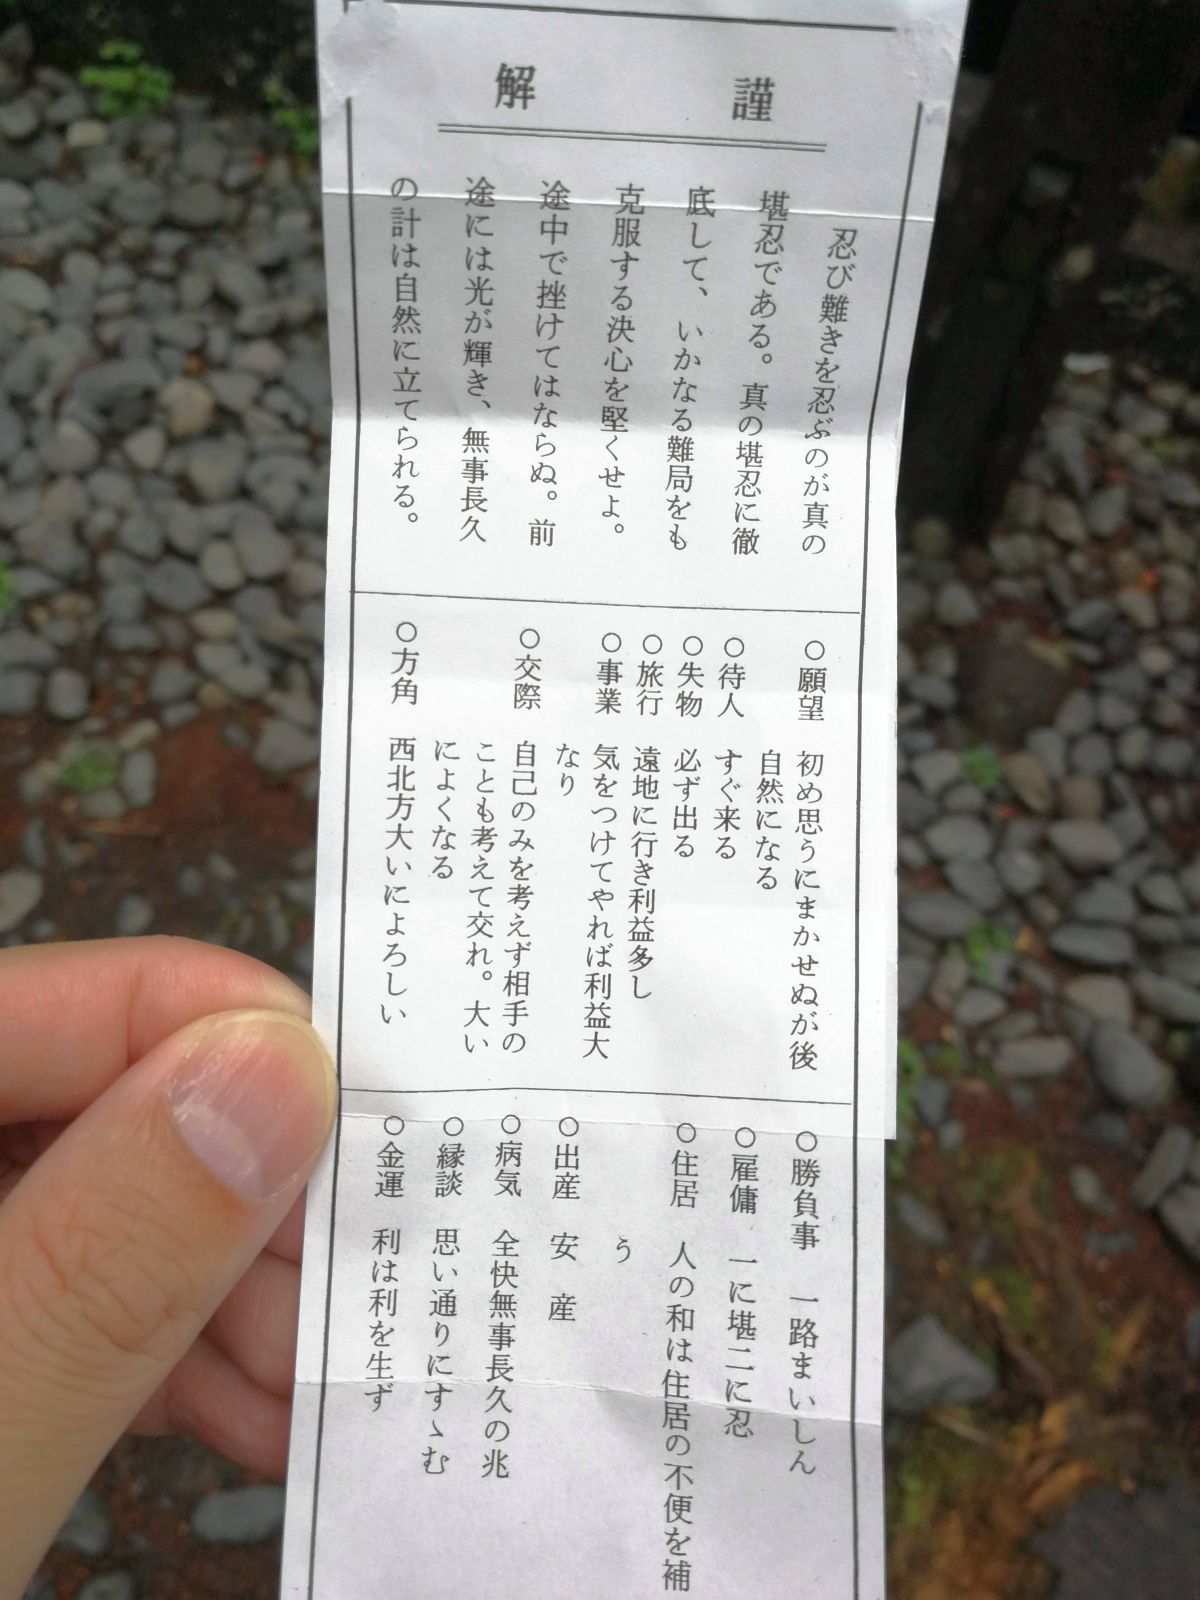 謹解
忍び難きを忍ぶのが真の
堪忍である。真の堪忍に徹
底して、いかなる難局をも
克服する決心を堅くせよ。
途中で挫けてはならぬ。前
途には光が輝き、無事長久
の計は自然に立てられる。
○願望 初め思うにまかせぬが後
自然になる
○待人 すぐ来る
○失物 必ず出る
○旅行 遠地に行き利益多し
○事業 気をつけてやれば利益大
なり
○交際 自己のみを考えず相手の
ことも考えて交れ。大い
によくなる
○方角 西北方大いによろしい
○勝負事 一路まいしん
○雇傭 一に堪二に忍
○住居 人の和は住居の不便を補
う
○出産 安産
○病気 全快無事長久の兆
○縁談 思い通りにすゝむ
○金運 利は利を生ず